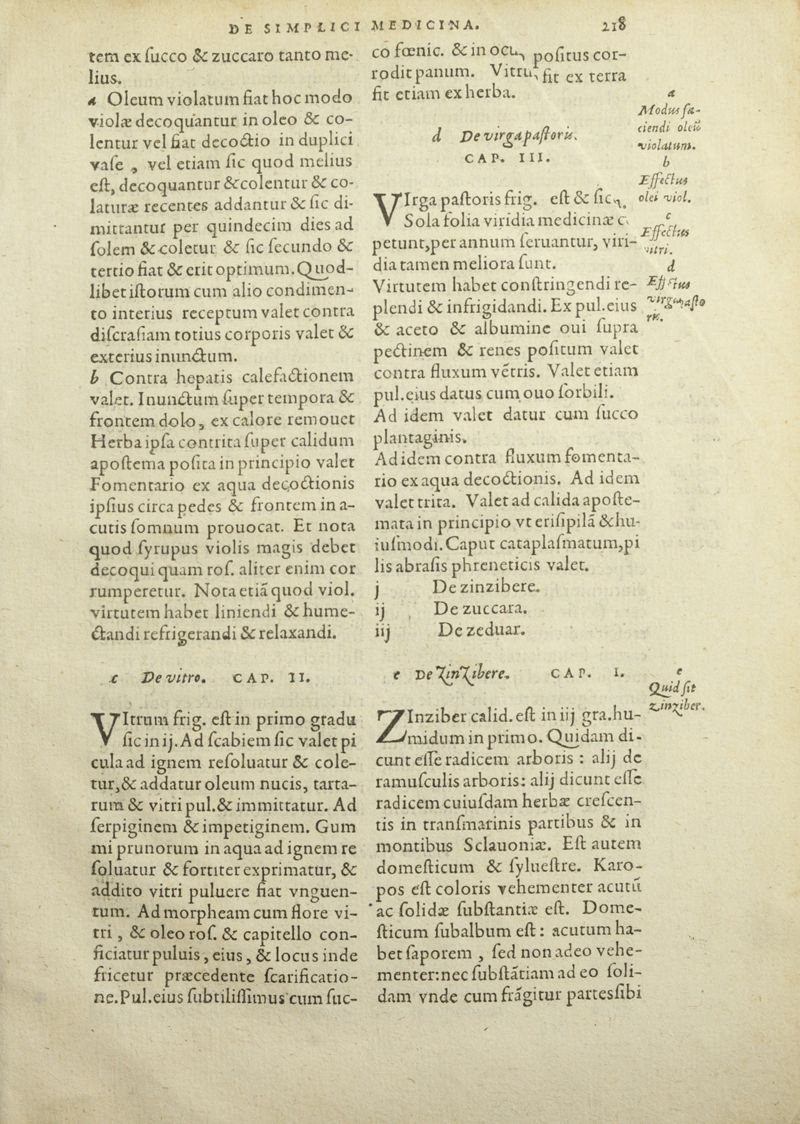 DE SIMPLICI MEDICINA. 218
tem ex ſucco & zuccaro tanto me-
lius.
a Oleum violatum fiat hoc modo
violæ decoquantur in oleo & co-
lentur vel fiat decoctio in duplici
vaſe , vel etiam ſic quod melius
eſt, decoquantur & colentur & co-
laturæ recentes addantur & ſic di-
mittantur per quindecim dies ad
ſolem & coletur & ſic ſecundo &
tertio fiat & erit optimum. Quod-
libet iſtorum cum alio condimen-
to interius receptum valet contra
diſcraſiam totius corporis valet &
exterius inunctum.
b Contra hepatis calefactionem
valet. Inunctum ſuper tempora &
frontem dolo, ex calore remouet
Herba ipſa contrita ſuper calidum
apoſtema poſita in principio valet
Fomentario ex aqua decoctionis
ipſius circa pedes & frontem in a-
cutis ſomnum prouocat. Et nota
quod ſyrupus violis magis debet
decoqui quam roſ. aliter enim cor
rumperetur. Nota etiã quod viol.
virtutem habet liniendi & hume-
ctandi refrigerandi & relaxandi.
c De vitro. CAP. II.
VItrum frig. eſt in primo gradu
ſic in ij. Ad ſcabiem ſic valet pi
cula ad ignem reſoluatur & cole-
tur, & addatur oleum nucis, tarta-
rum & vitri pul. & immittatur. Ad
ſerpiginem & impetiginem. Gum
mi prunorum in aqua ad ignem re
ſoluatur & fortiter exprimatur, &
addito vitri puluere fiat vnguen-
tum. Ad morpheam cum flore vi-
tri , & oleo roſ. & capitello con-
ficiatur puluis, eius, & locus inde
fricetur præcedente ſcarificatio-
ne. Pul. eius ſubtiliſſimus cum ſuc-
co fœnic. & in ocu, poſitus cor-
rodit panum. Vitru, fit ex terra
fit etiam ex herba.
d De virga paſtoris.
CAP. III.
VIrga paſtoris frig. eſt & ſic,
Sola folia viridia medicinæ
petunt, per annum ſeruantur, viri-
dia tamen meliora ſunt.
Virtutem habet conſtringendi re-
plendi & infrigidandi. Ex pul. eius
& aceto & albumine oui ſupra
pectinem & renes poſitum valet
contra fluxum vẽtris. Valet etiam
pul. eius datus cum ouo ſorbili.
Ad idem valet datur cum ſucco
plantaginis.
Ad idem contra fluxum fomenta-
rio ex aqua decoctionis. Ad idem
valet trita. Valet ad calida apoſte-
mata in principio vt eriſipilã & hu-
iuſmodi. Caput cataplaſmatum, pi
lis abraſis phreneticis valet.
j De zinzibere.
ij De zuccara.
iij De zeduar.
e De Zinzibere. CAP. I.
ZInziber calid. eſt in iij gra. hu-
midum in primo. Quidam di-
cunt eſſe radicem arboris : alij de
ramuſculis arboris: alij dicunt eſſe
radicem cuiuſdam herbæ creſcen-
tis in tranſmarinis partibus & in
montibus Sclauoniæ. Eſt autem
domeſticum & ſylueſtre. Karo-
pos eſt coloris vehementer acutũ
ac ſolidæ ſubſtantiæ eſt. Dome-
ſticum ſubalbum eſt : acutum ha-
bet ſaporem , ſed non adeo vehe-
menter: nec ſubſtãtiam ad eo ſoli-
dam vnde cum frãgitur partes ſibi
a
Modus fa-
ciendi oleũ
violatum.
b
Effectus
olei viol.
c
Effectus
vitri.
d
Effectus
virgæ paſto
ris.
e
Quid ſit
zinziber.